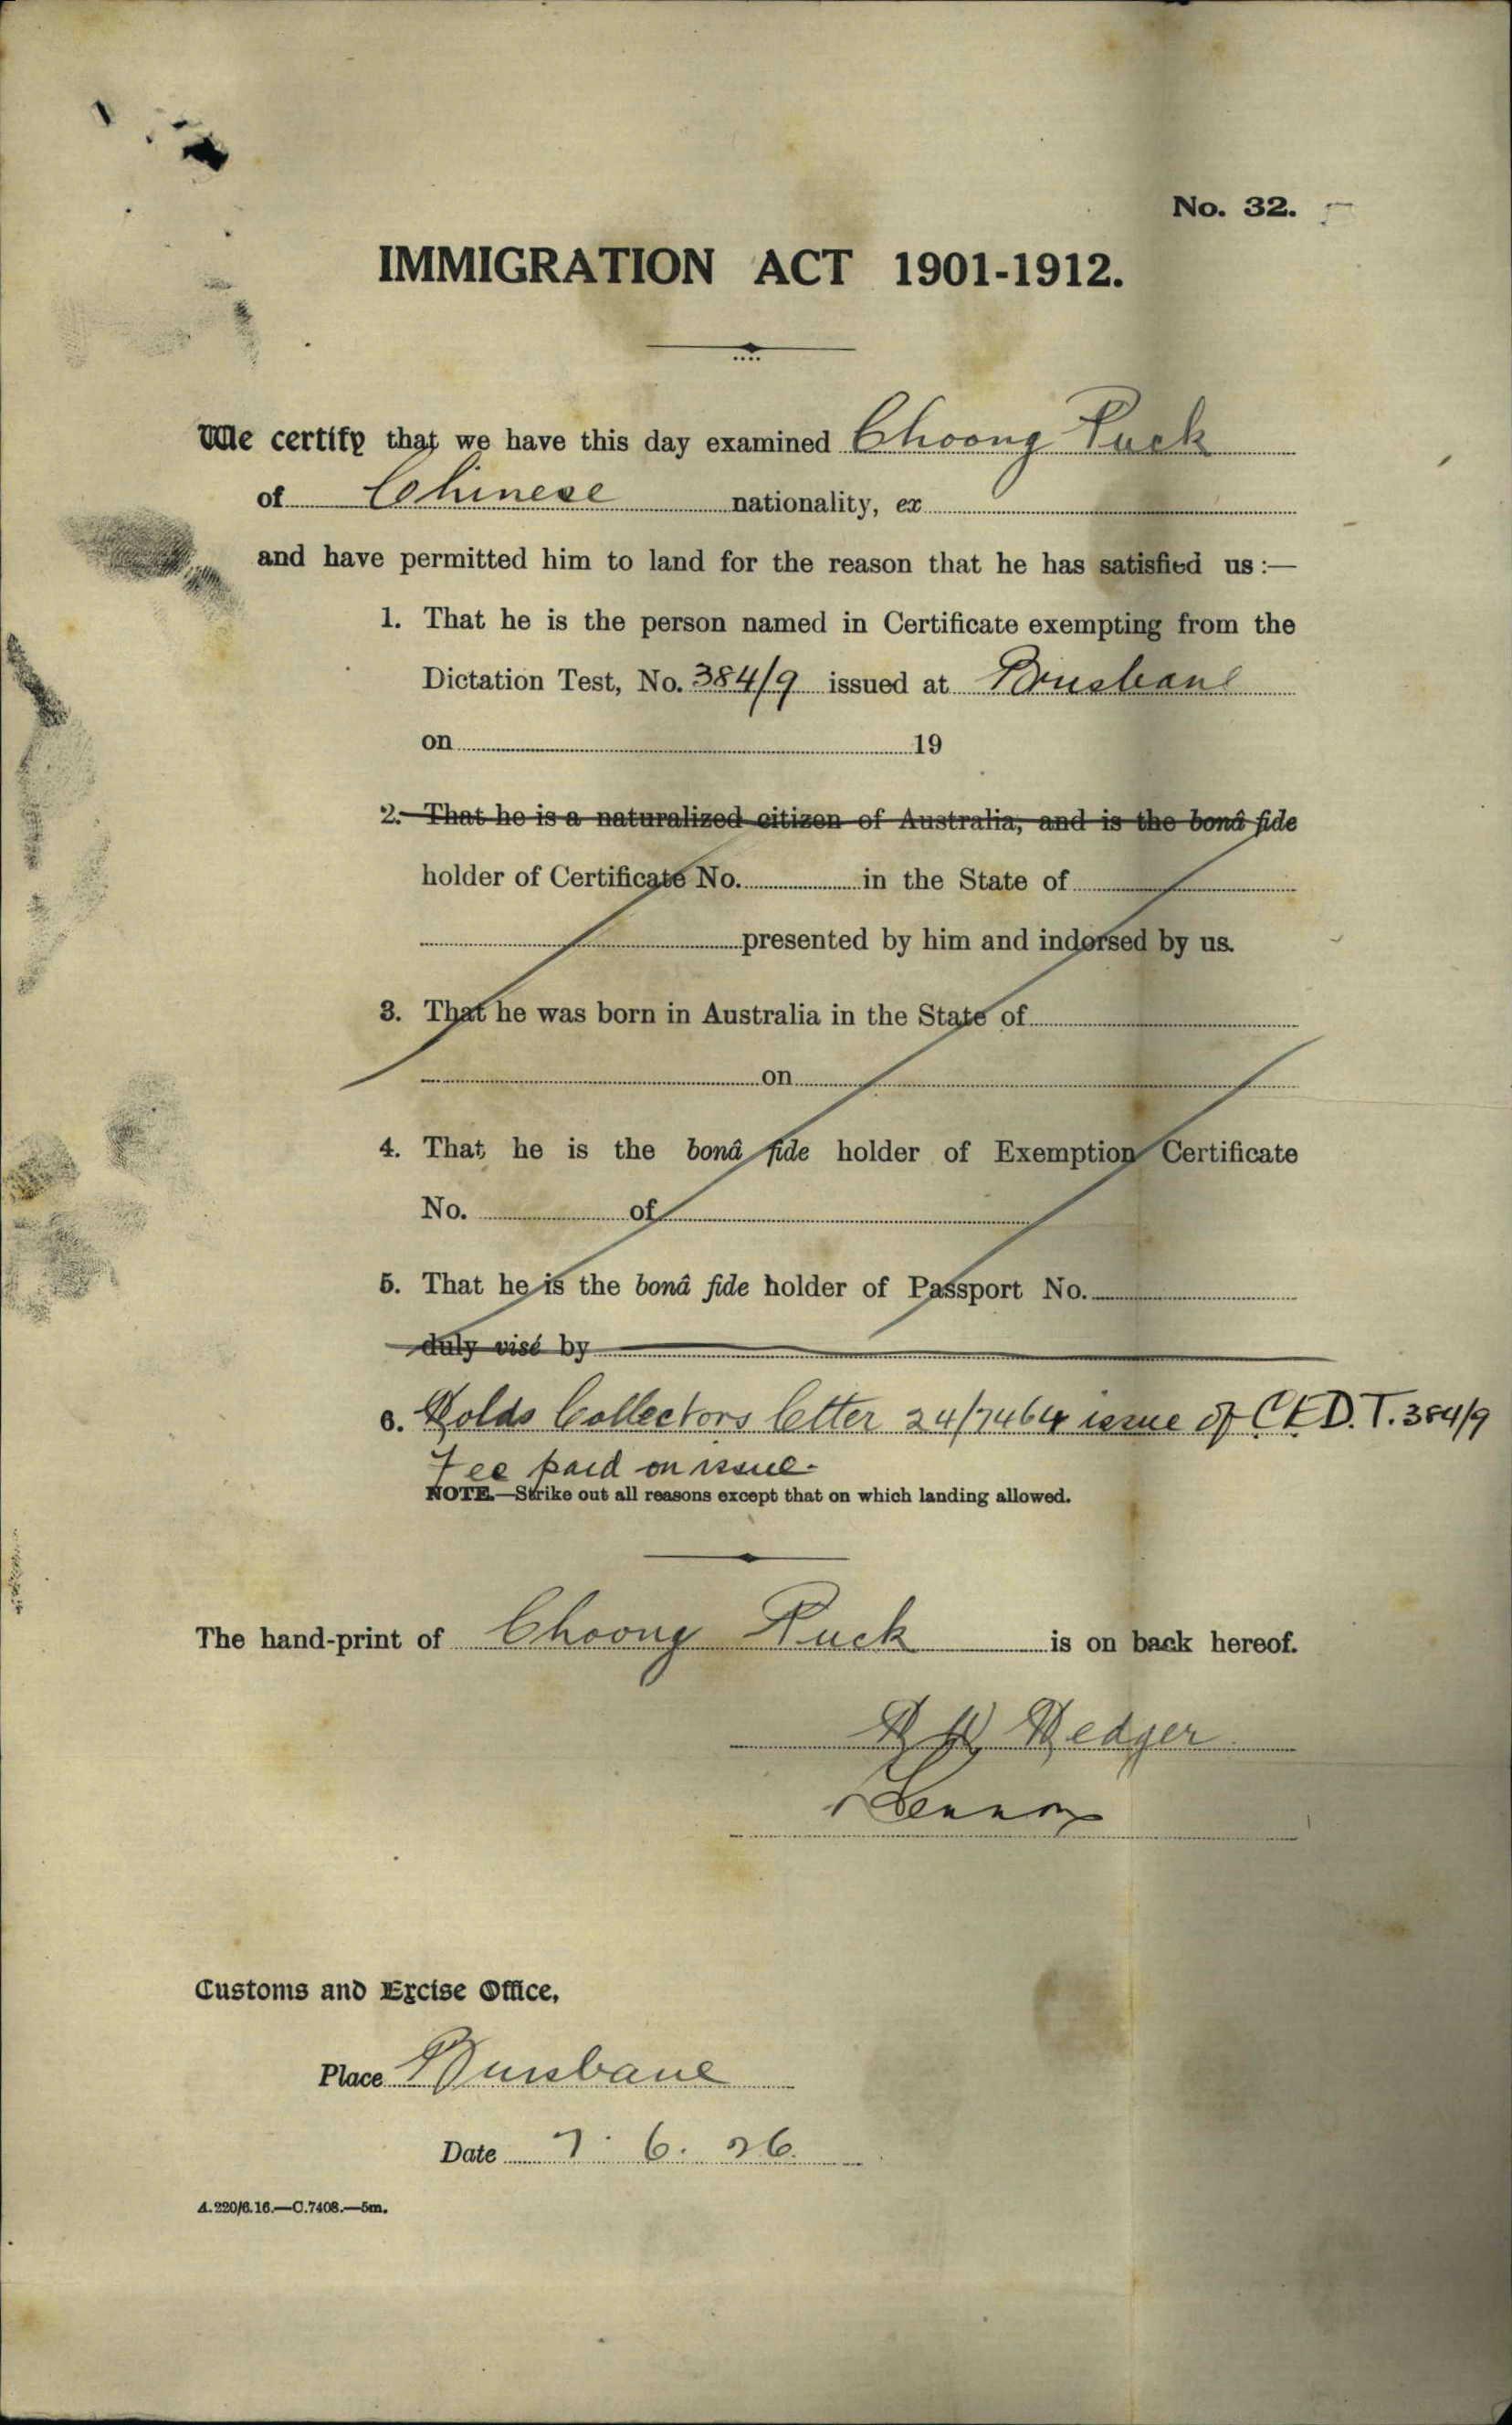 No. 32.
IMMIGRATION ACT 1901-1912.
We certify that we have this day examined Choong Puck
of Chinese nationality, ex
and have permitted him to land for the reason that he has satisfied us:—
1. That he is the person named in Certificate exempting from the
Dictation Test, No. 384/9 issued at Brisbane
on 19
2. That he is a naturalized citizen of Australia, and is the bonâ fide
holder of Certificate No. in the State of
presented by him and indorsed by us.
3. That he was born in Australia in the State of
on
4. That he is the bonâ fide holder of Exemption Certificate
No. of
5. That he is the bonâ fide holder of Passport No.
duly visé by
6. Holds Collectors letter 24/7464 issue of C.E.D.T. 384/9
Fee paid on issue.
NOTE.—Strike out all reasons except that on which landing allowed.
The hand-print of Choong Puck is on back hereof.
Hedger
Lennox
Customs and Excise Office,
Place Brisbane
Date 7. 6. 26.
A.220/6.16.—C.7408.—5m.